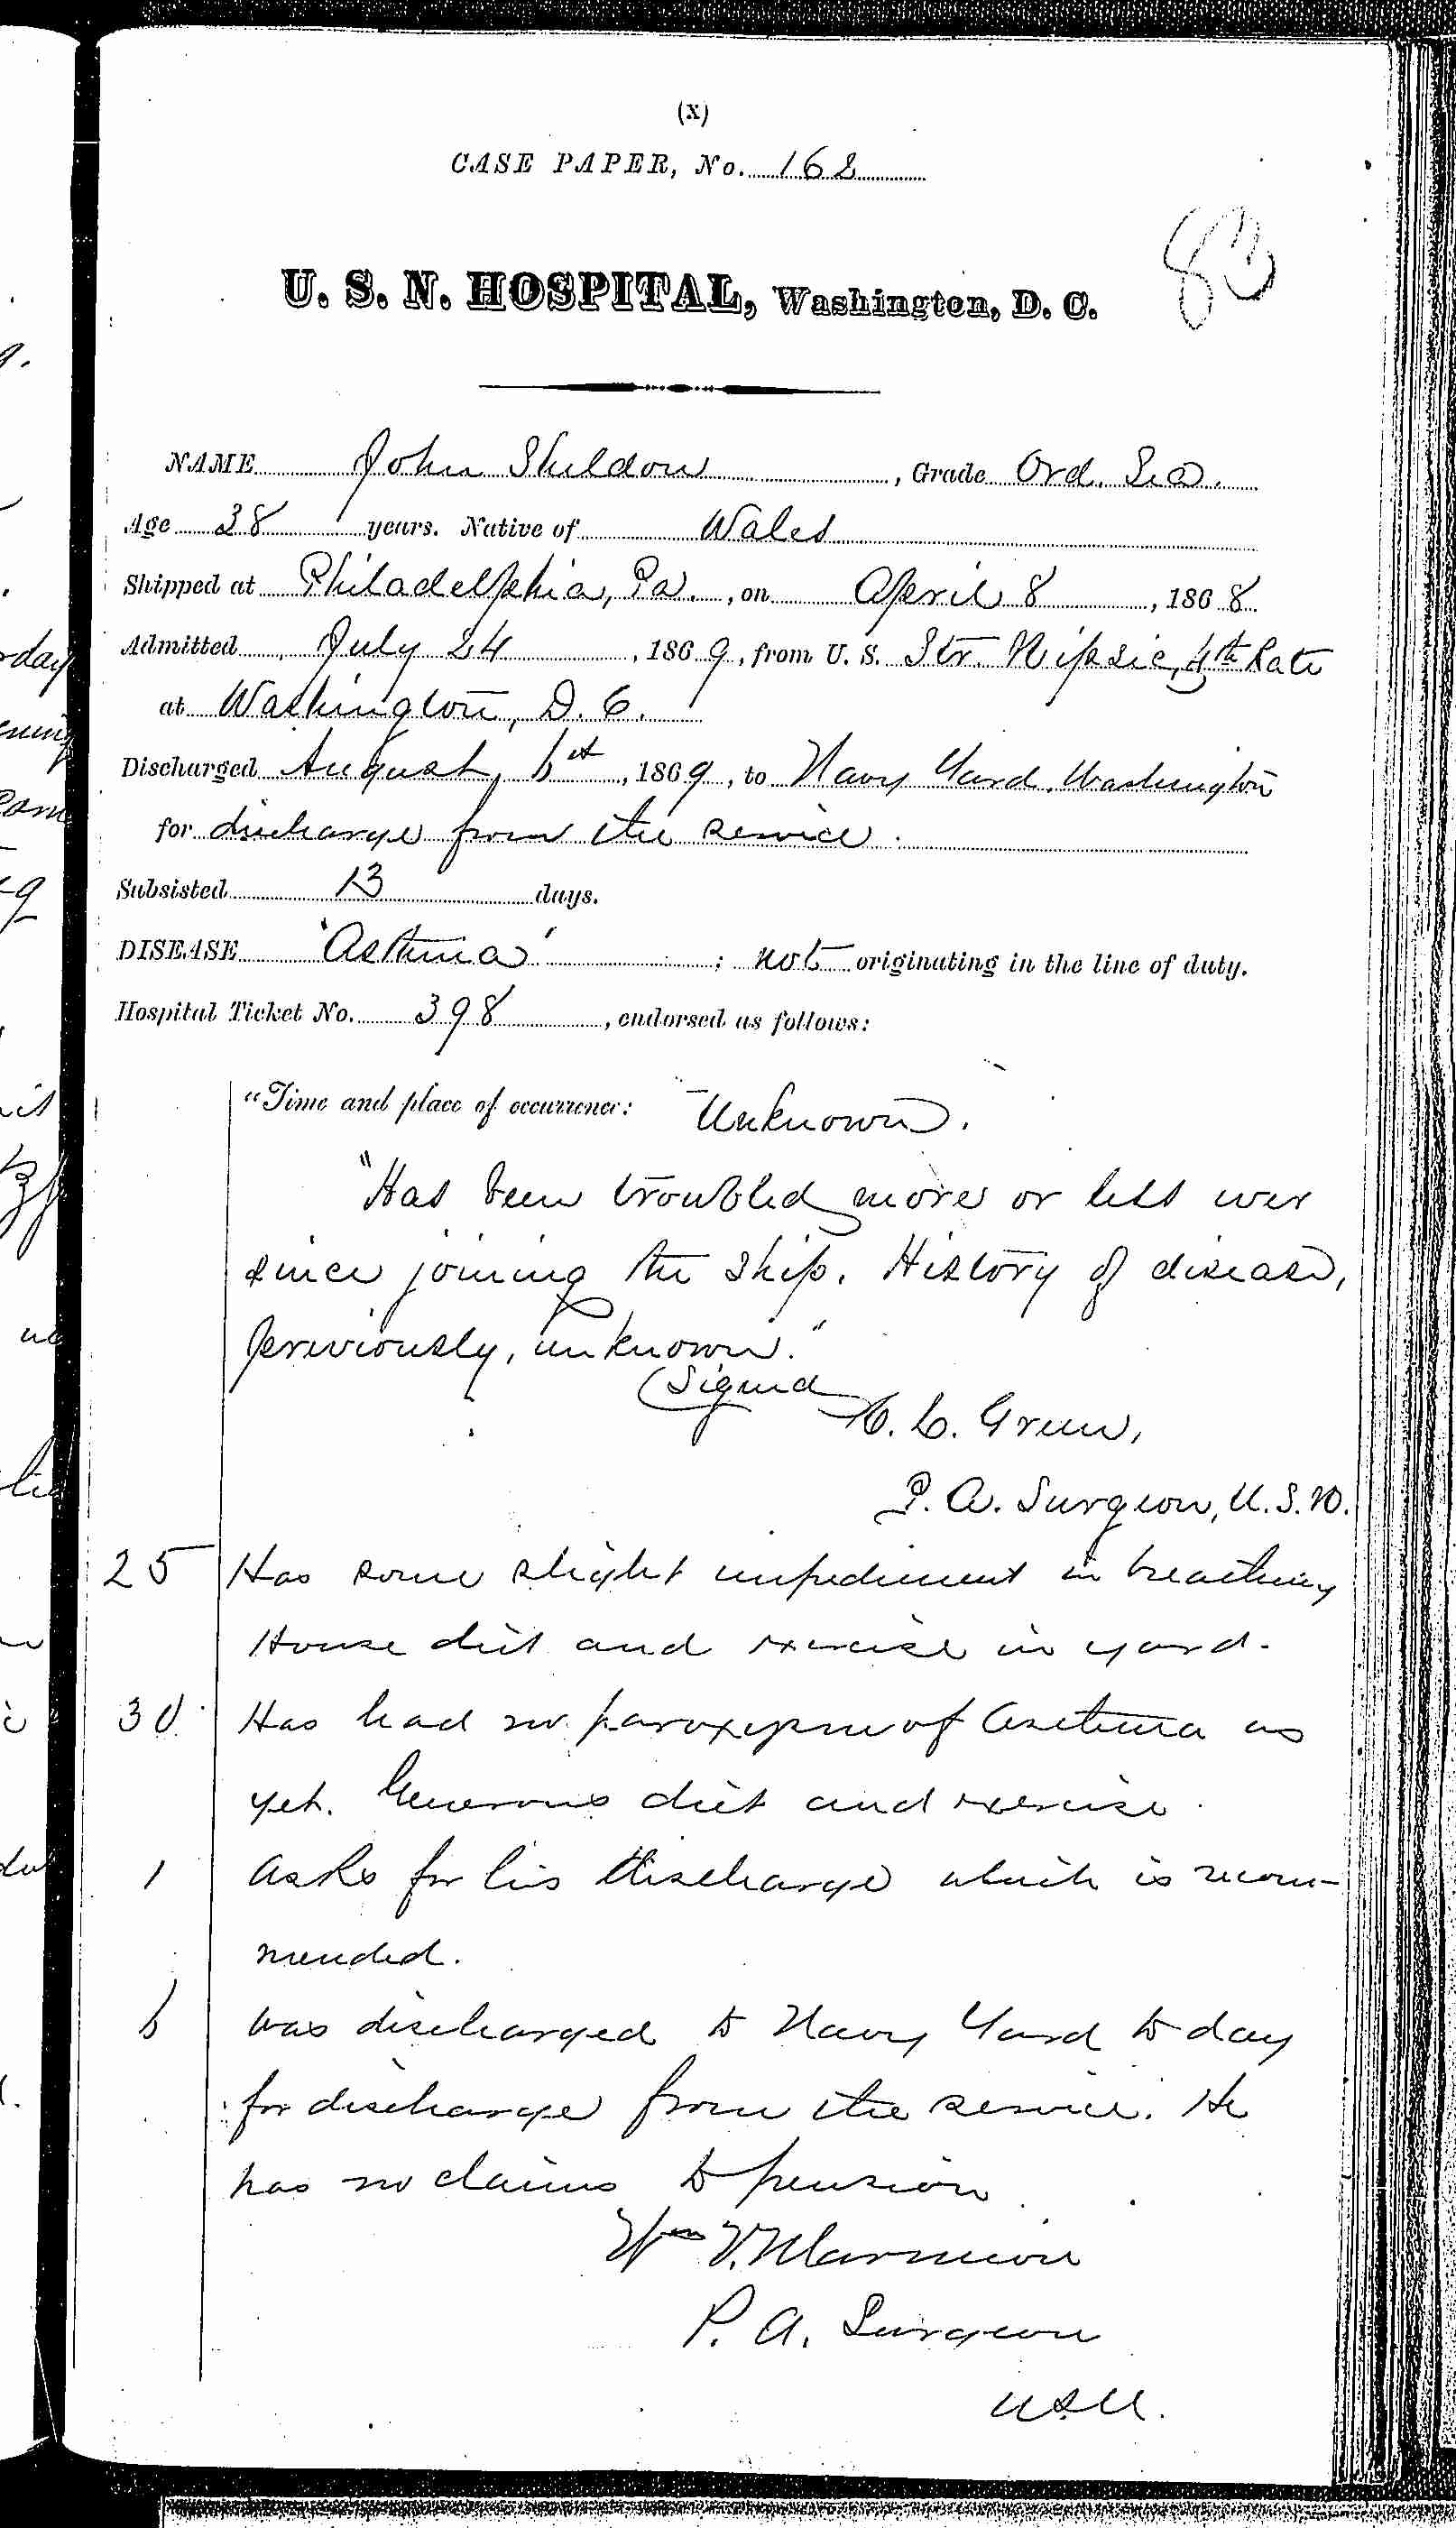 (X)
CASE PAPER, No. 162
80
U. S. N. HOSPITAL, Washington, D. C.
NAME John Sheldon, Grade Ord. Sea.
Age 38 years. Native of Wales
Shipped at Philadelphia, Pa., on April 8, 1868.
Admitted July 24, 1869, from U. S. Str. Nipsic, 4th Rate
at Washington, D. C.
Discharged August, 6th, 1869, to Navy Yard, Washington
for discharge from the service.
Subsisted 13 days.
DISEASE "Asthma"; not originating in the line of duty.
Hospital Ticket No. 398, endorsed as follows:
"Time and place of occurrence: Unknown.
"Has been troubled more or less ever
since joining the ship. History of disease,
previously, unknown."
(Signed
C. L. Green,
P. A. Surgeon, U.S.N.
25 Has some slight impediment in breathing
House diet and exercise in yard.
30 Has had no paroxysm of Asthma as
yet. Generous diet and exercise.
1 Asks for his discharge which is recom-
mended.
6 Was discharged to Navy Yard to day
for discharge from the service. He
has no claims to pension.
Wm V. Marmion
P. A. Surgeon
U.S.N.